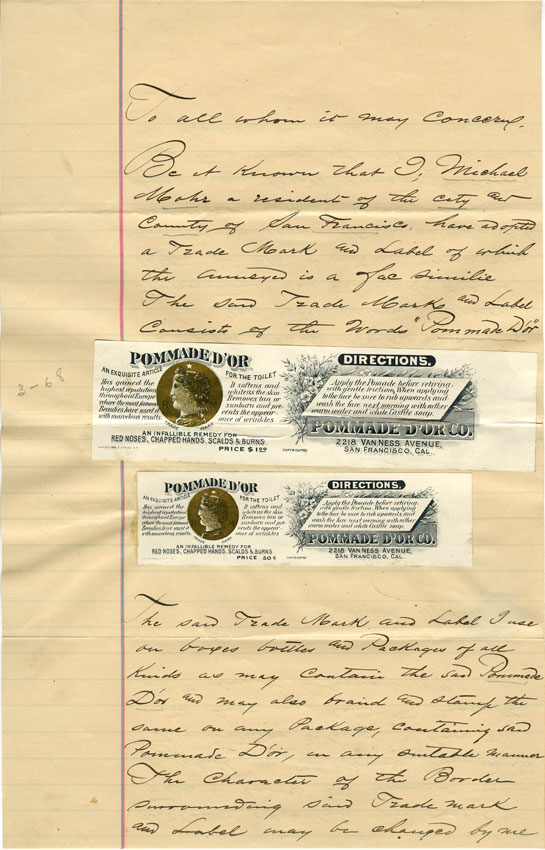 To all whom it may concern,
Be it Known that I, Michael
Mohr a resident of the city and
County of San Francisco, have adopted
a Trade Mark and Label of which
the annexed is a fac similie
The said Trade Mark and Label
Consists of the Words "Pommade D'or"
3-68
POMMADE D'OR
AN EXQUISITE ARTICLE FOR THE TOILET
Has gained the
highest reputation
throughout Europe
where the most famous
Beauties have used it
with marvelous results.
TRADE MARK
It softens and
whitens the skin
Removes tan or
sunburn and pre-
vents the appear-
ance of wrinkles
AN INFALLIBLE REMEDY FOR
RED NOSES, CHAPPED HANDS, SCALDS & BURNS
PRICE $1.00
COPYRIGHTED
DIRECTIONS.
Apply the Pomade before retiring
with gentle friction. When applying
to the face be sure to rub upwards and
wash the face next morning with rather
warm water and white Castile soap.
POMMADE D'OR CO.
2218 VAN NESS AVENUE,
SAN FRANCISCO, CAL.
POMMADE D'OR
AN EXQUISITE ARTICLE FOR THE TOILET
Has gained the
highest reputation
throughout Europe
where the most famous
Beauties have used it
with marvelous results.
TRADE MARK
It softens and
whitens the skin
Removes tan or
sunburn and pre-
vents the appear-
ance of wrinkles
AN INFALLIBLE REMEDY FOR
RED NOSES, CHAPPED HANDS, SCALDS & BURNS
PRICE 50¢
COPYRIGHTED
DIRECTIONS.
Apply the Pomade before retiring
with gentle friction. When applying
to the face be sure to rub upwards and
wash the face next morning with rather
warm water and white Castile soap.
POMMADE D'OR CO.
2218 VAN NESS AVENUE,
SAN FRANCISCO, CAL.
The said Trade Mark and Label I use
on boxes bottles and Packages of all
Kinds as may contain the said Pommade
D'or and may also brand and stamp the
same on any Package, containing said
Pommade D'or, in any suitable manner
The Character of the Border
surrounding said Trade mark
and Label may be changed by me